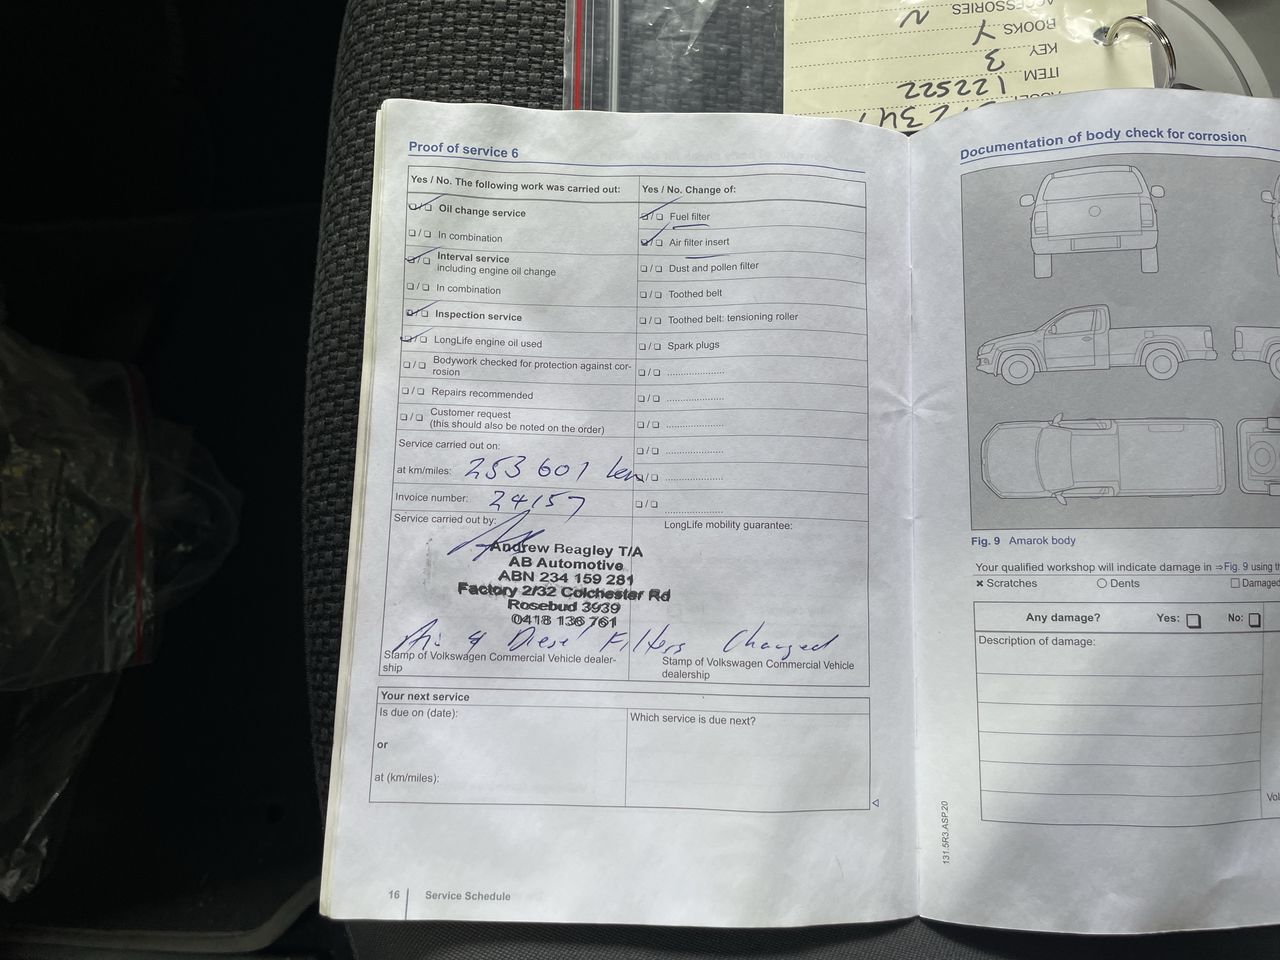 ACCESSORIES N
BOOKS Y
KEY 3
ITEM 122522
Proof of service 6
Yes / No. The following work was carried out:
Yes / No. Change of:
❑/❑ Oil change service
❑/❑ Fuel filter
❑/❑ In combination
❑/❑ Air filter insert
❑/❑ Interval service
including engine oil change
❑/❑ Dust and pollen filter
❑/❑ In combination
❑/❑ Toothed belt
❑/❑ Inspection service
❑/❑ Toothed belt: tensioning roller
❑/❑ LongLife engine oil used
❑/❑ Spark plugs
❑/❑ Bodywork checked for protection against cor-
rosion
❑/❑ ......................
❑/❑ Repairs recommended
❑/❑ ......................
❑/❑ Customer request
(this should also be noted on the order)
❑/❑ ......................
Service carried out on:
❑/❑ ......................
at km/miles: 253 607 km
❑/❑ ......................
Invoice number: 24157
❑/❑ ......................
Service carried out by:
LongLife mobility guarantee:
Andrew Beagley T/A
AB Automotive
ABN 234 159 281
Factory 2/32 Colchester Rd
Rosebud 3939
0418 136 761
Air & Diesel Filters Changed
Stamp of Volkswagen Commercial Vehicle dealer-
ship
Stamp of Volkswagen Commercial Vehicle
dealership
Your next service
Is due on (date):
Which service is due next?
or
at (km/miles):
16 Service Schedule
Documentation of body check for corrosion
Fig. 9 Amarok body
Your qualified workshop will indicate damage in ⇒Fig. 9 using
× Scratches
○ Dents
❑ Damaged
Any damage? Yes: ❑ No: ❑
Description of damage:
131.5R3.ASP.20